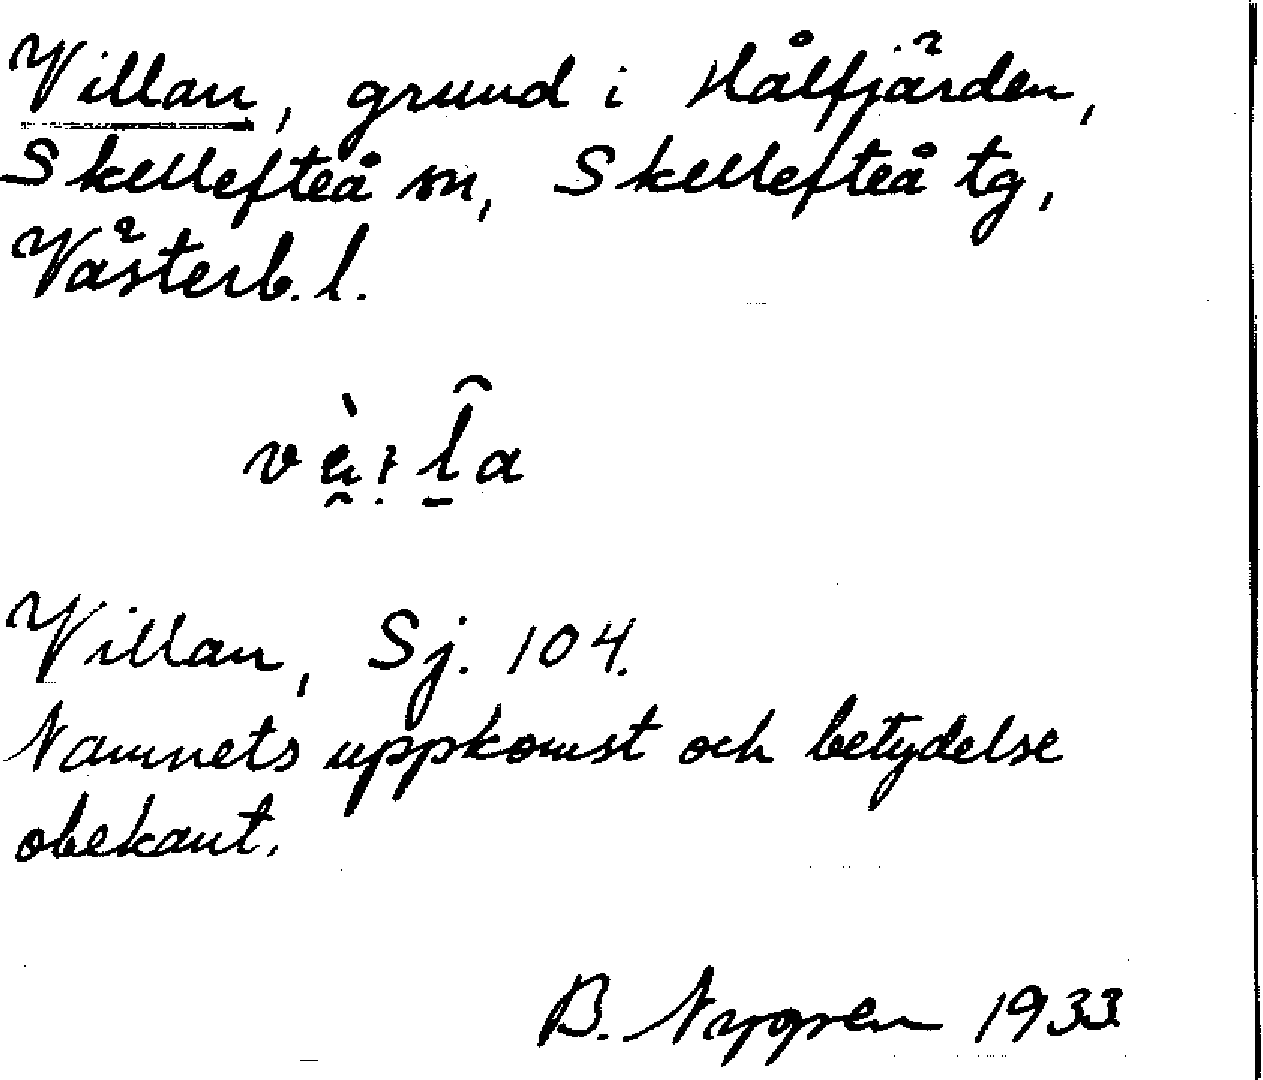 Villan, grund i Hålfjärden,
Skellefteå sn, Skellefteå tg,
Västerb. l.
Villan, Sj. 104.
Namnets uppkomst och betydelse
obekant.
B. Nygren 1933